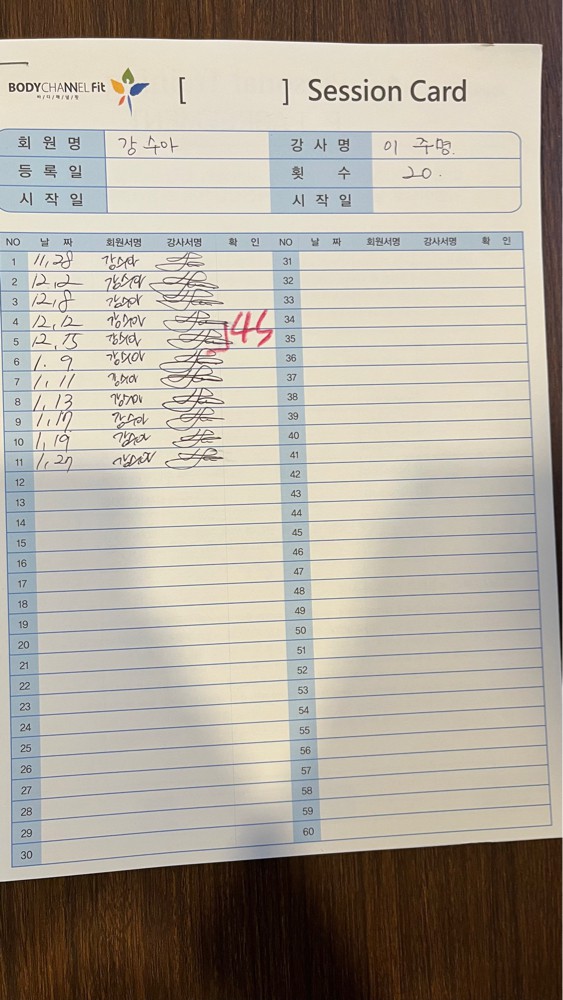 BODYCHANNEL Fit
바/디/채/널/핏
[ ] Session Card
회 원 명 강 수아 강 사 명 이 주명.
등 록 일 횟 수 20.
시 작 일 시 작 일
NO 날 짜 회원서명 강사서명 확 인 NO 날 짜 회원서명 강사서명 확 인
1 11, 28 강수아 31
2 12, 2 강수아 32
3 12, 8 강수아 33
4 12, 12 강수아 34
5 12, 15 강수아 35
6 1. 9. 강수아 36
7 1, 11 강수아 37
8 1, 13 강수아 38
9 1, 17 강수아 39
10 1, 19 강수아 40
11 1, 27 강수아 41
12 42
13 43
14 44
15 45
16 46
17 47
18 48
19 49
20 50
21 51
22 52
23 53
24 54
25 55
26 56
27 57
28 58
29 59
30 60